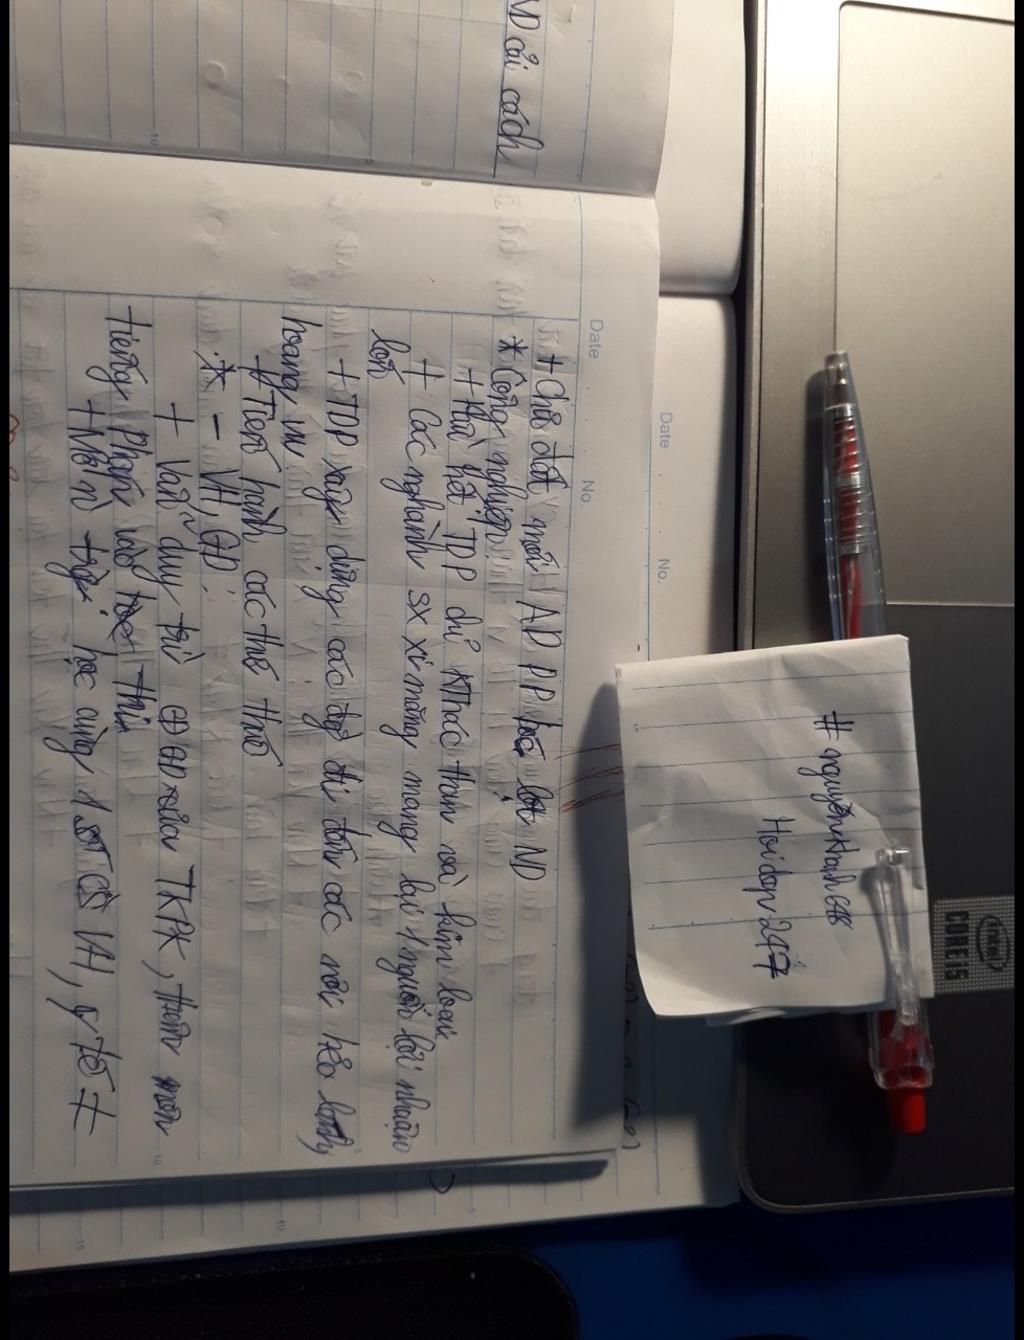 cải cách
Date No.
Date No.
+ Chủ đất mới AD PP bóc lột ND
* Công nghiệp
+ Hầu hết TDP dể KThác than và kim loại
+ Các nghành sx xi măng mang lại 1 nguồn lợi nhuận
lớn
+ TDP xây dựng các đg đi đến các nơi hẻo lánh,
hoang vu
+ Tiến hành các thứ thuế
* - VH, GD:
+ Vẫn duy trì GD của TKPK, thêm môn
tiếng Pháp vào thi
+ Mở n trg học cùng 1 số CS VH, y tế ≠
# nguyenkhanh648
Hoidap247
intel
CORE i5